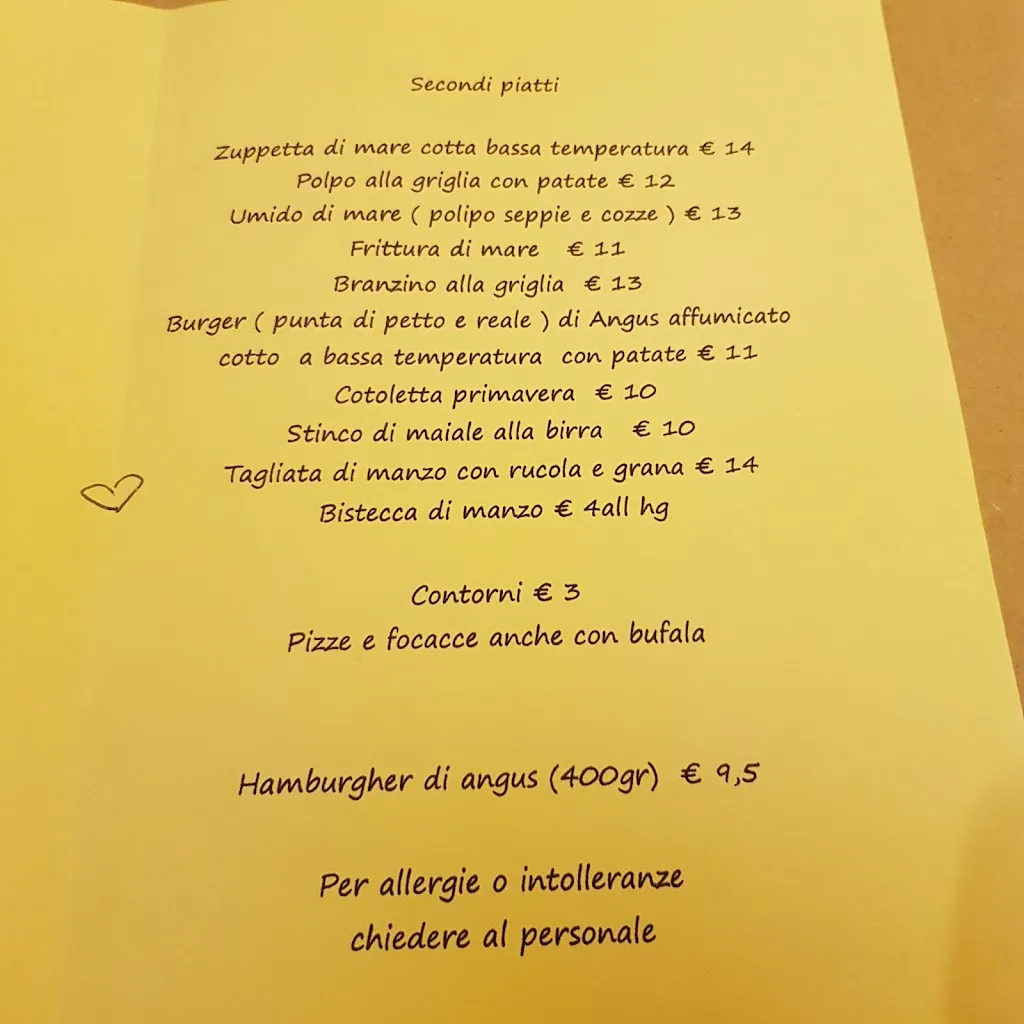 Secondi piatti
Zuppetta di mare cotta bassa temperatura € 14
Polpo alla griglia con patate € 12
Umido di mare ( polipo seppie e cozze ) € 13
Frittura di mare € 11
Branzino alla griglia € 13
Burger ( punta di petto e reale ) di Angus affumicato
cotto a bassa temperatura con patate € 11
Cotoletta primavera € 10
Stinco di maiale alla birra € 10
Tagliata di manzo con rucola e grana € 14
Bistecca di manzo € 4all hg
Contorni € 3
Pizze e focacce anche con bufala
Hamburgher di angus (400gr) € 9,5
Per allergie o intolleranze
chiedere al personale